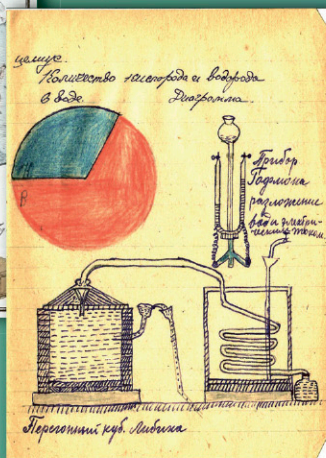 целиус.
Количество кислорода и водорода
в воде. Диаграмма.
К
В
Прибор
Гофмана
разложение
воды электри-
ческим током.
Перегонный куб. Либиха